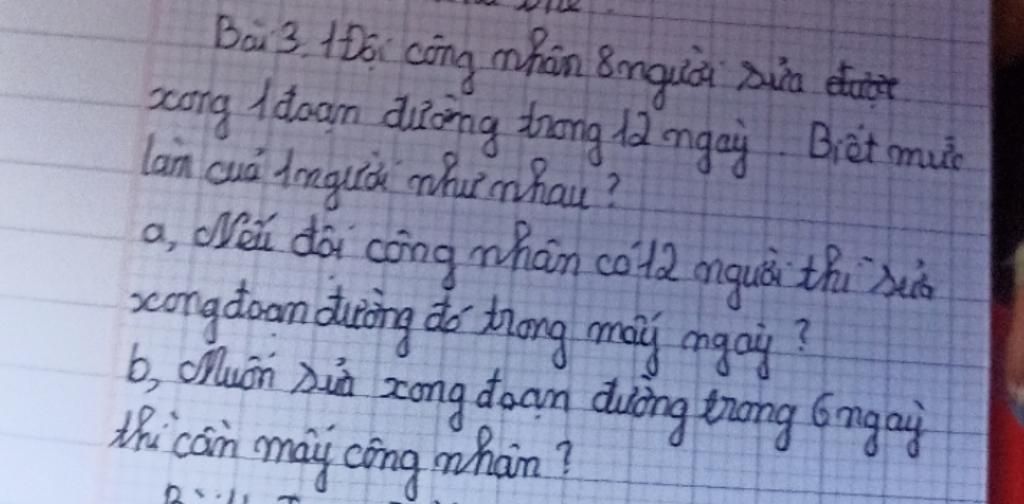 Bài 3. 1 Đội công nhân 8 người sửa được
xong 1 đoạn đường trong 12 ngày. Biết mức
làm của 1 người như nhau?
a, Nếu đội công nhân có 12 người thì sửa
xong đoạn đường đó trong mấy ngày?
b, Muốn sửa xong đoạn đường trong 6 ngày
thì cần mấy công nhân?